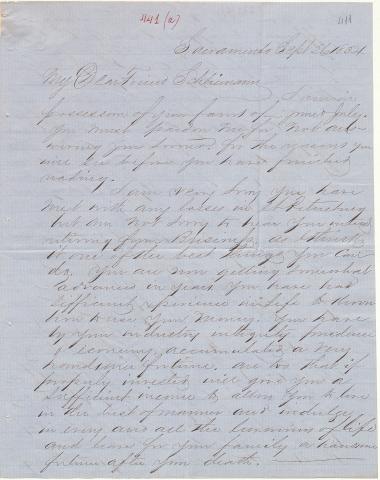 441 (a)
Sacramento Sept 26 1854
My Dear Friend Schliemann
I am in
possession of your favor of your July.
You must pardon me for not
you sooner for the reasons you
will see before you have finished
reading.
I am very sorry you have
met with any losses in St Petersburg
but am not sorry to hear you
your Business as I think
it one of the best things you can
do. You are now getting somewhat
advanced in years You have had
sufficient experience in life to know
how to use your money. You have
by your industry integrity prudence
& economy accumulated a very
handsome fortune. and so that if
properly invested will give you a
sufficient income to allow you to live
in the best of manner and indulge
in every and all the luxuries of life
and leave for your family a handsome
fortune after your death.